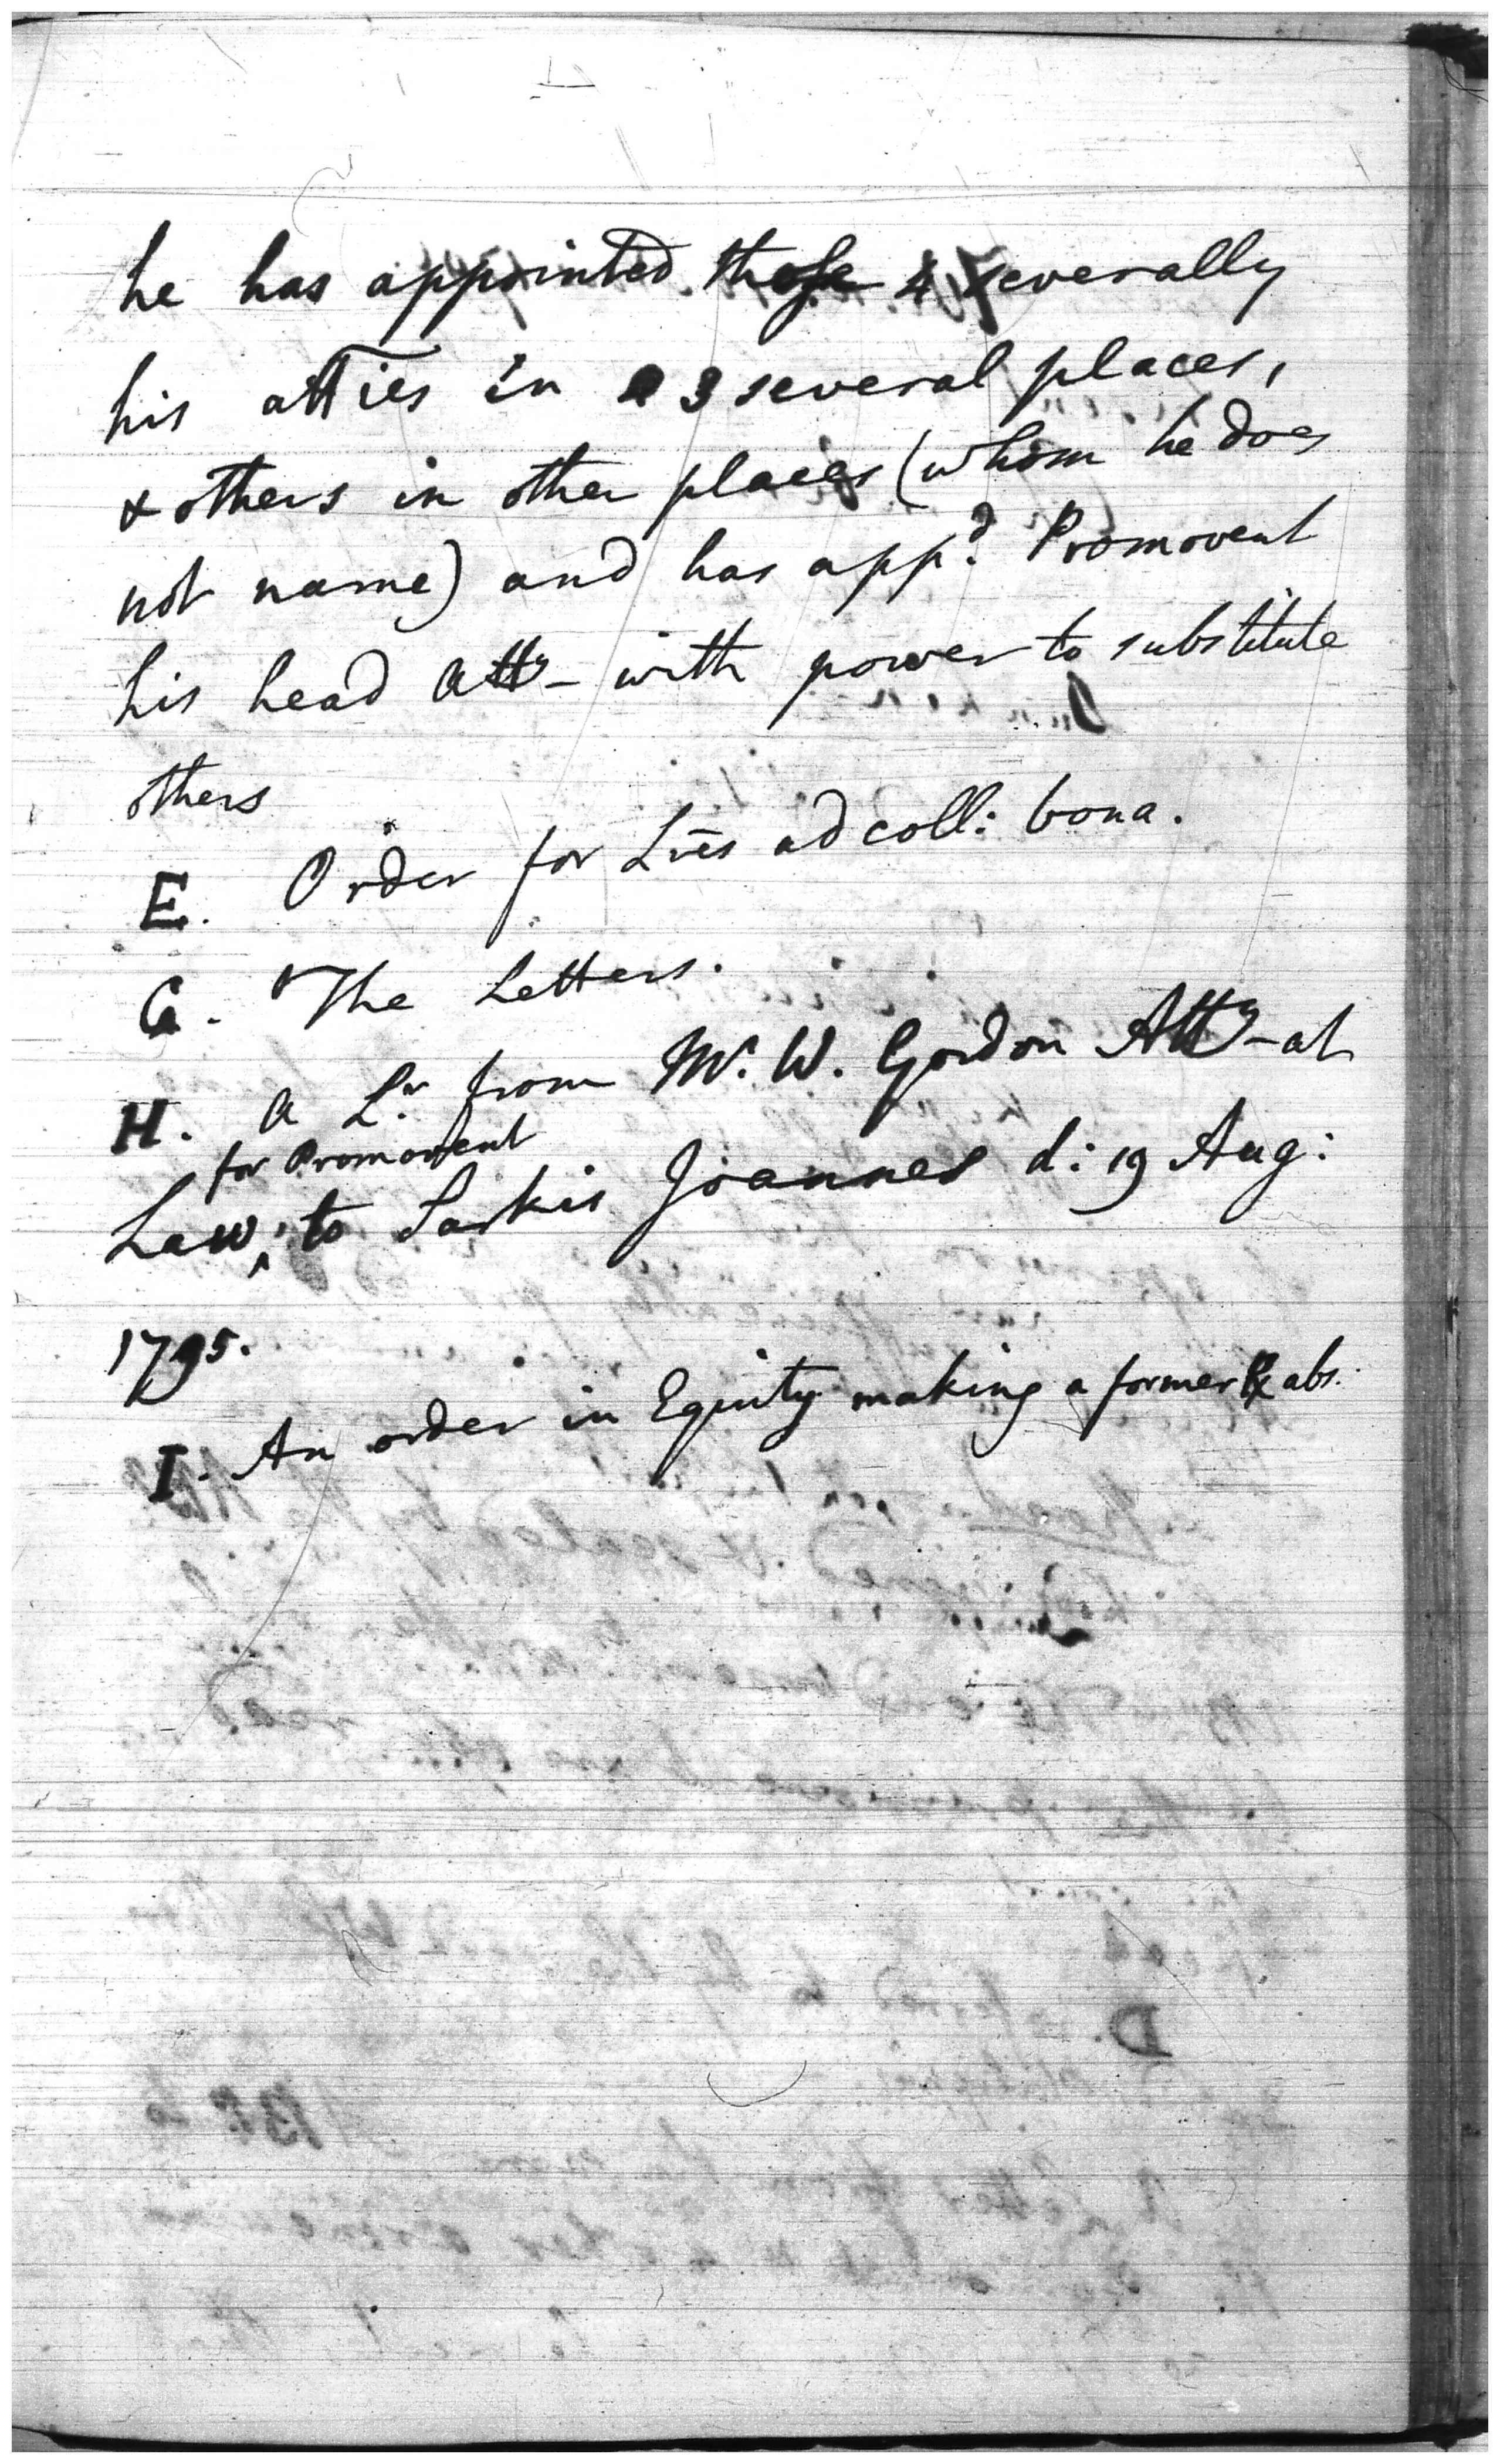 he has appointed those 4 severally
his atties in 3 several places,
& others in other places (whom he does
not name) and has app.d Promovent
his head Atty - with power to substitute
others
E. Order for Lres ad coll: bona.
G. The Letters.
H. a Lr from Mr. W. Gordon Atty - at
for Promovent
Law, to Sarkis Joannes d: 19 Aug:
1795.
I. An order in Equity making a former R abs.